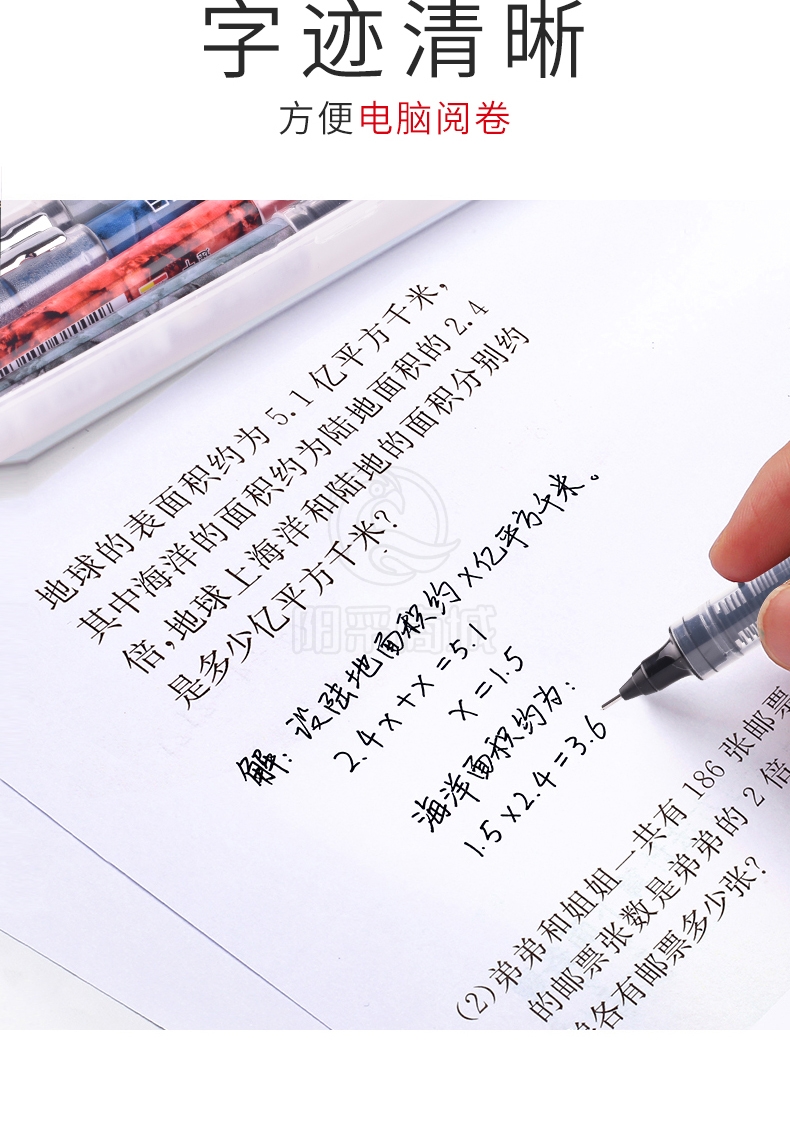 字迹清晰
方便电脑阅卷
地球的表面积约为 5.1 亿平方千米,
其中海洋的面积约为陆地面积的 2.4
倍,地球上海洋和陆地的面积分别约
是多少亿平方千米?
阳采商城
解: 设陆地面积约 x 亿平方千米。
2.4x+x=5.1
x=1.5
海洋面积约为:
1.5×2.4=3.6
(2)弟弟和姐姐一共有 186 张邮票
的邮票张数是弟弟的 2 倍
各有邮票多少张?